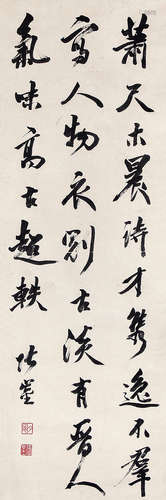 蕭尺木晨詩才雋逸不羣
寫人物衣古淡有晉人
氣味高古超軼